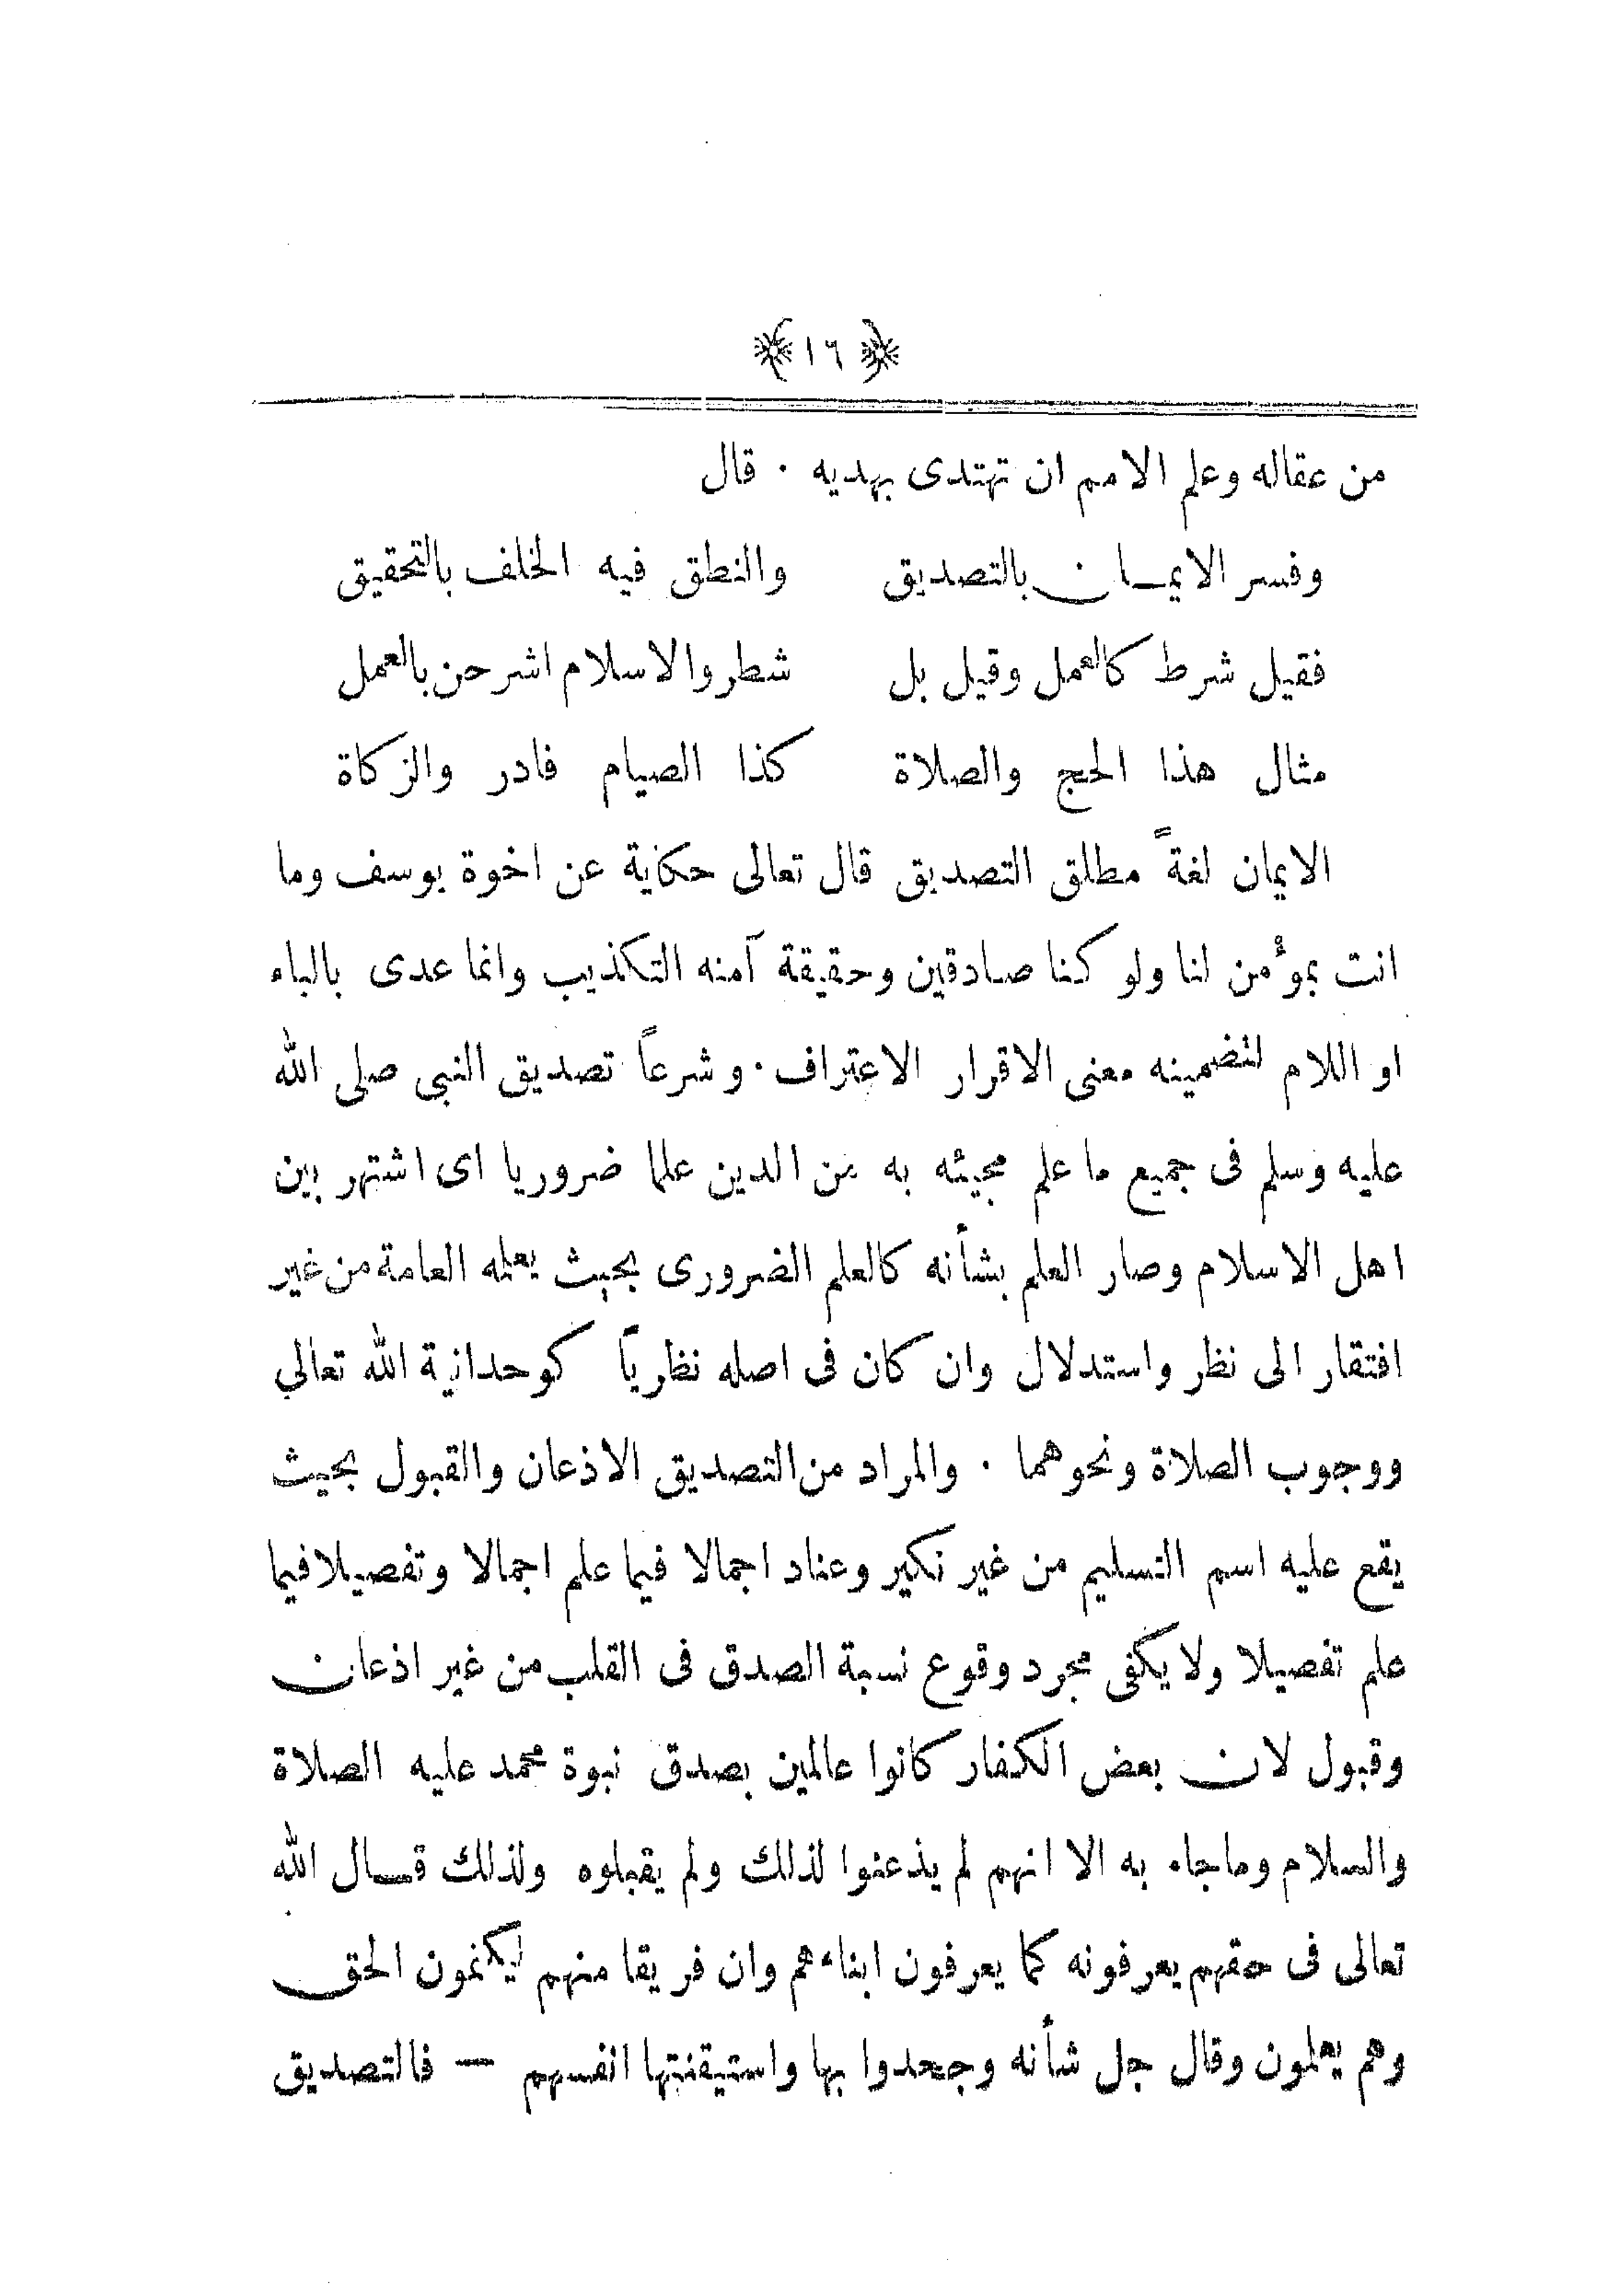 ﴿ ١٦ ﴾
من عقاله وعلم الامم ان تهتدى بهديه . قال
وفسر الايمان بالتصديق والنطق فيه الخلف بالتحقيق
فقيل شرط كالعمل وقيل بل شطر والاسلام اشرحن بالعمل
مثال هذا الحج والصلاة كذا الصيام فادر والزكاة
الايمان لغةً مطلق التصديق قال تعالى حكاية عن اخوة يوسف وما
انت بمؤمن لنا ولو كنا صادقين وحقيقة آمنه التكذيب وانما عدى بالباء
او اللام لتضمينه معنى الاقرار الاعتراف . وشرعاً تصديق النبي صلى الله
عليه وسلم فى جميع ما علم مجيئه به من الدين علما ضروريا اى اشتهر بين
اهل الاسلام وصار العلم بشأنه كالعلم الضرورى بحيث يعلمه العامة من غير
افتقار الى نظر واستدلال وان كان فى اصله نظرياً كوحدانية الله تعالى
ووجوب الصلاة ونحوهما . والمراد من التصديق الاذعان والقبول بحيث
يقع عليه اسم التسليم من غير نكير وعناد اجمالا فيما علم اجمالا وتفصيلا فيما
علم تفصيلا ولا يكفى مجرد وقوع نسبة الصدق فى القلب من غير اذعان
وقبول لان بعض الكفار كانوا عالمين بصدق نبوة محمد عليه الصلاة
والسلام وما جاء به الا انهم لم يذعنوا لذلك ولم يقبلوه ولذلك قال الله
تعالى فى حقهم يعرفونه كما يعرفون ابناءهم وان فريقا منهم ليكتمون الحق
وهم يعلمون وقال جل شأنه وجحدوا بها واستيقنتها انفسهم — فالتصديق